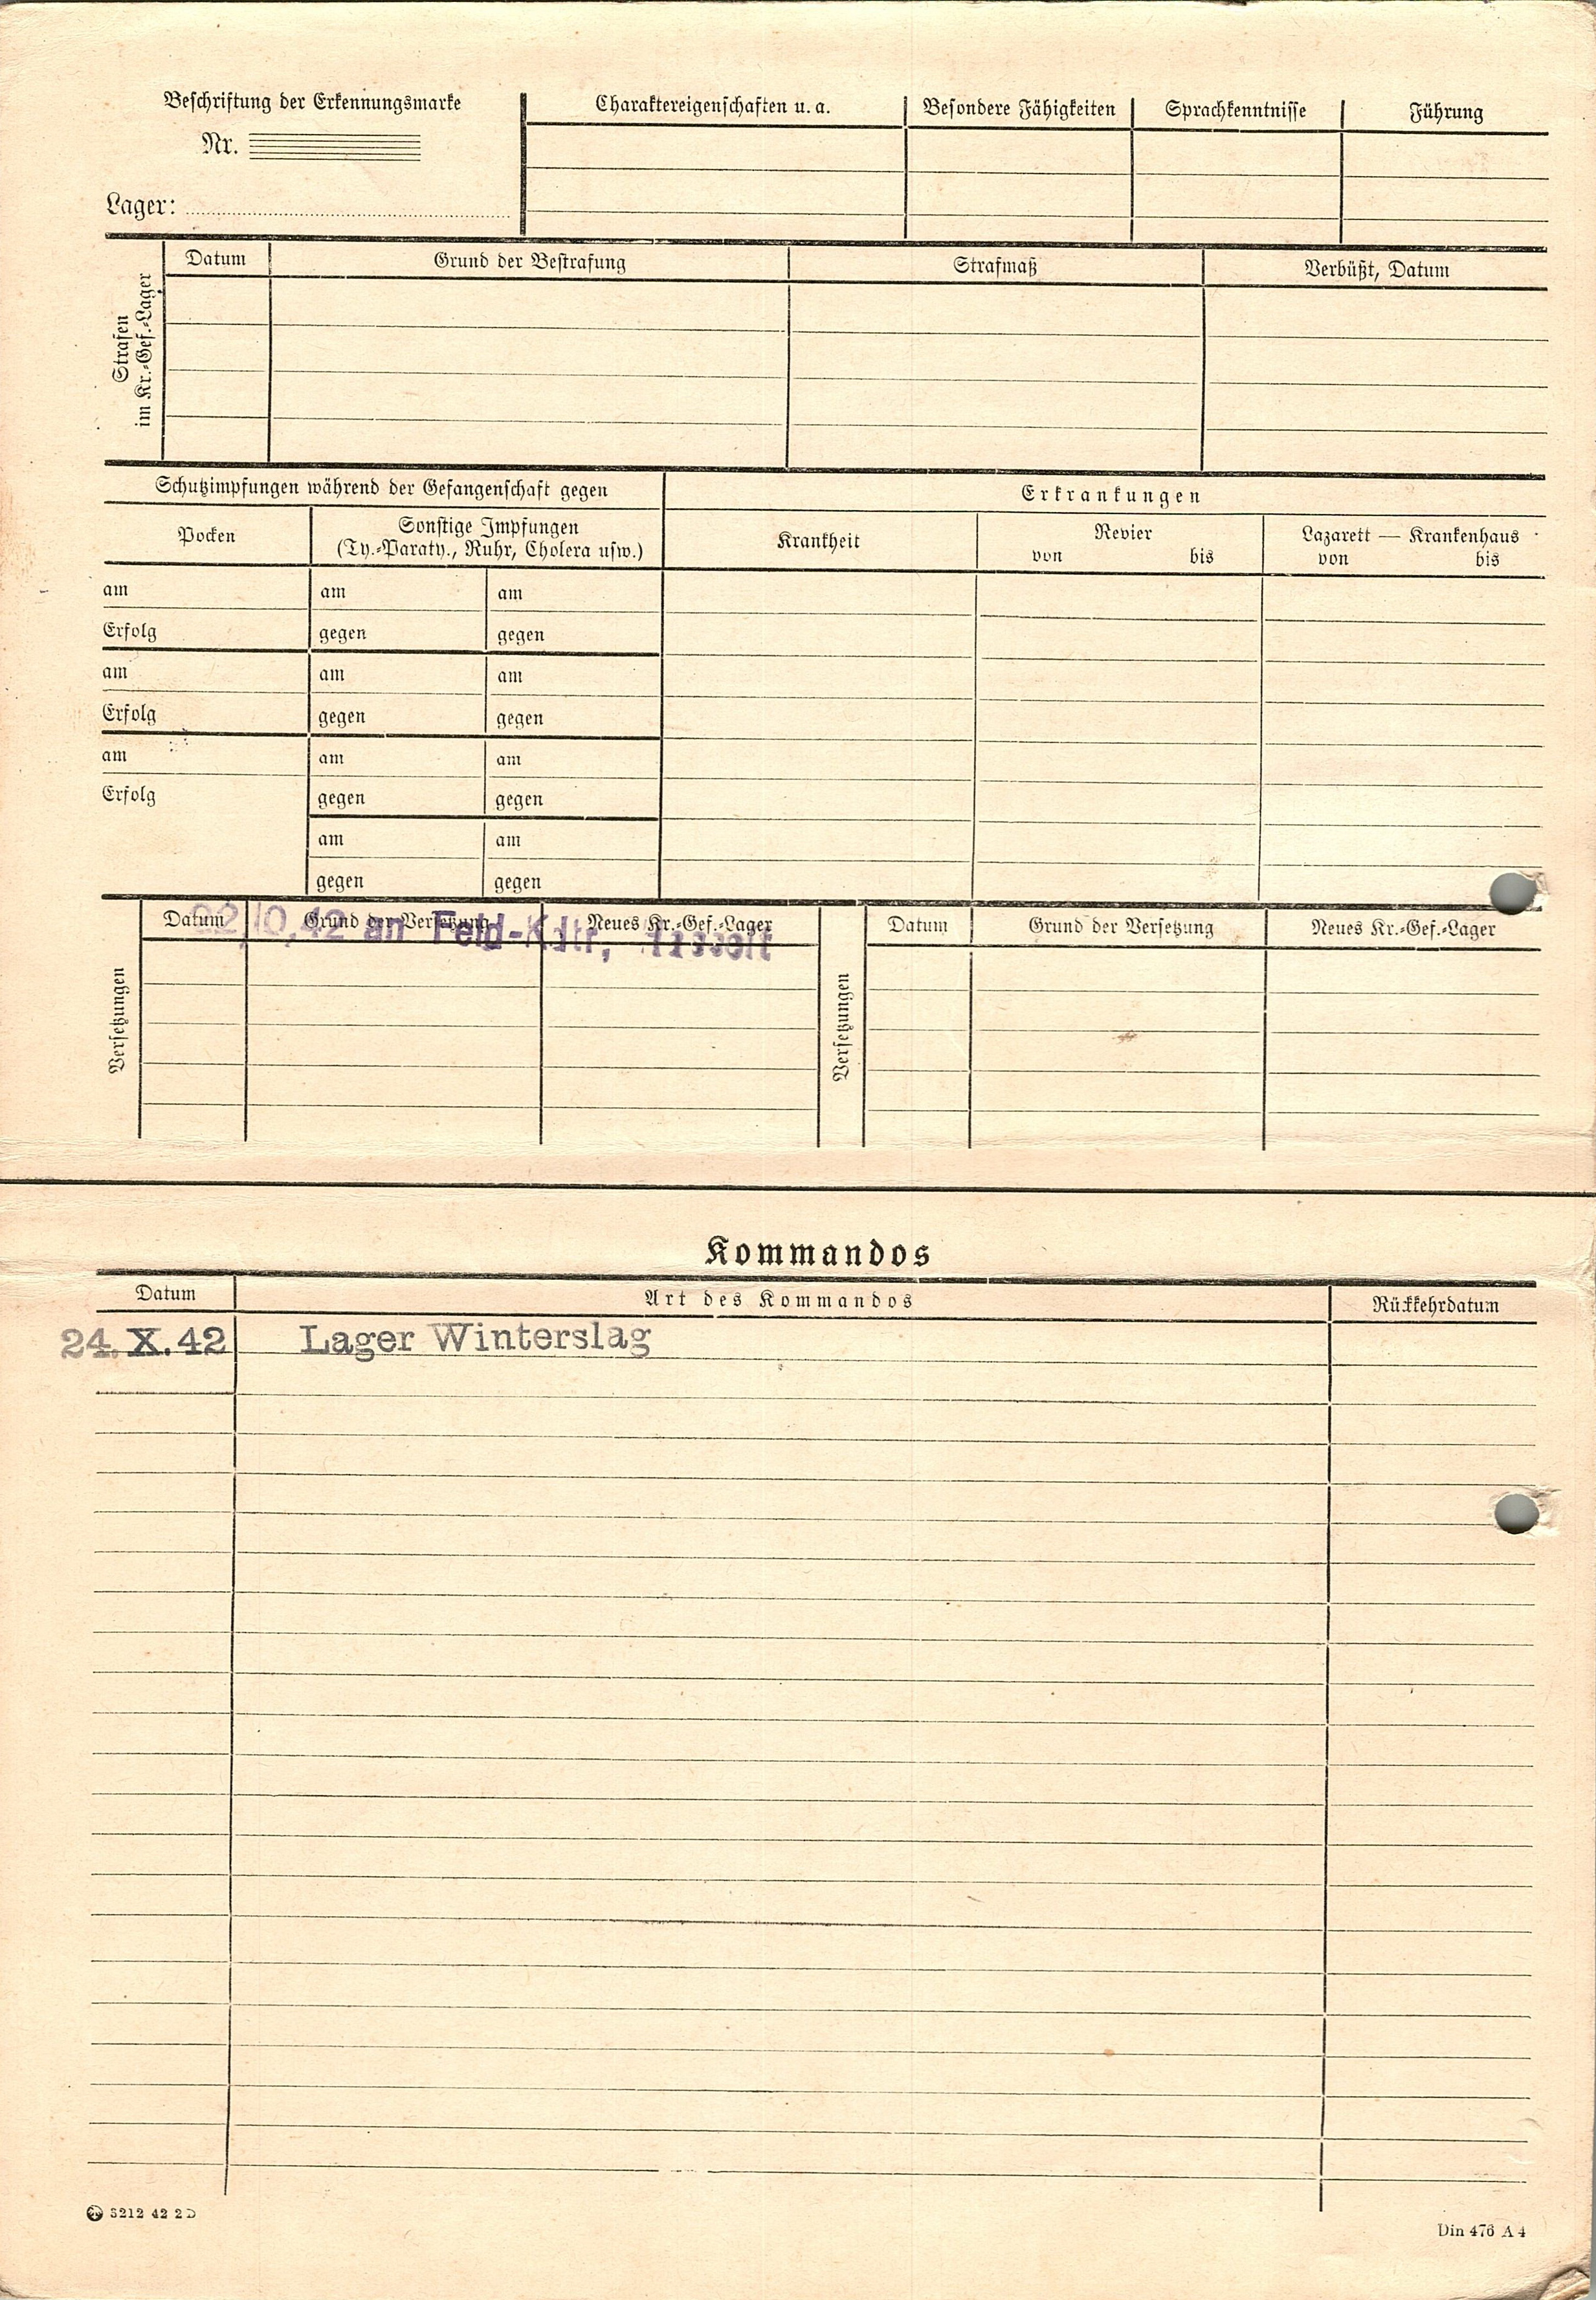 Beschriftung der Erkennungsmarke
Nr.
Lager:
Charaktereigenschaften u. a.
Besondere Fähigkeiten
Sprachkenntnisse
Führung
Strafen
im Kr.-Gef.-Lager
Datum
Grund der Bestrafung
Strafmaß
Verbüßt, Datum
Schutzimpfungen während der Gefangenschaft gegen
Erkrankungen
Pocken
Sonstige Impfungen
(Ty.-Paraty., Ruhr, Cholera usw.)
Krankheit
Revier
von bis
Lazarett — Krankenhaus
von bis
am am am
Erfolg gegen gegen
am am am
Erfolg gegen gegen
am am am
Erfolg gegen gegen
am am
gegen gegen
Versetzungen
Datum
Grund der Versetzung
Neues Kr.-Gef.-Lager
22,10,42 an Feld-Kdtr,
Versetzungen
Datum
Grund der Versetzung
Neues Kr.-Gef.-Lager
Kommandos
Datum
Art des Kommandos
Rückkehrdatum
24. X. 42 Lager Winterslag
S212 42 2D
Din 476 A 4